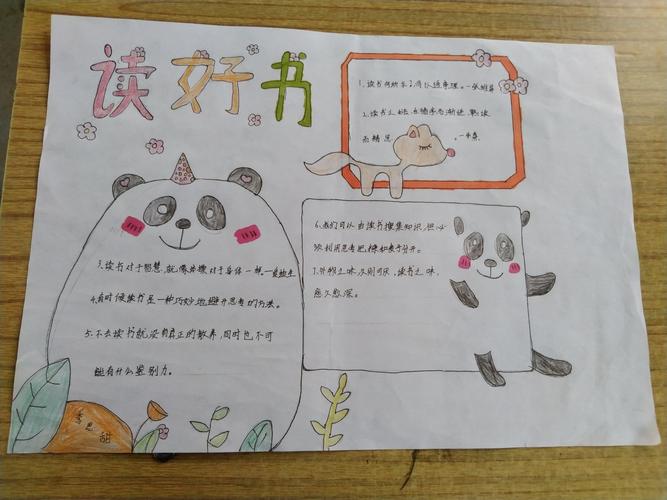 读好书
1.读书何所求？将以通事理。一张维屏
2.读书之法，在循序而渐进，熟读
而精思。一朱熹
3.读书对于智慧，就像体操对于身体一样一爱迪生
4.有时候读书是一种巧妙地避开思考的方法。
5.不去读书就没有真正的教养，同时也不可
能有什么鉴别力。
6.我们可以由读书搜集知识，但必
须利用思考把糠和麦子分开。
7.外物之味，久则可厌，读书之味，
愈久愈深。
李思甜